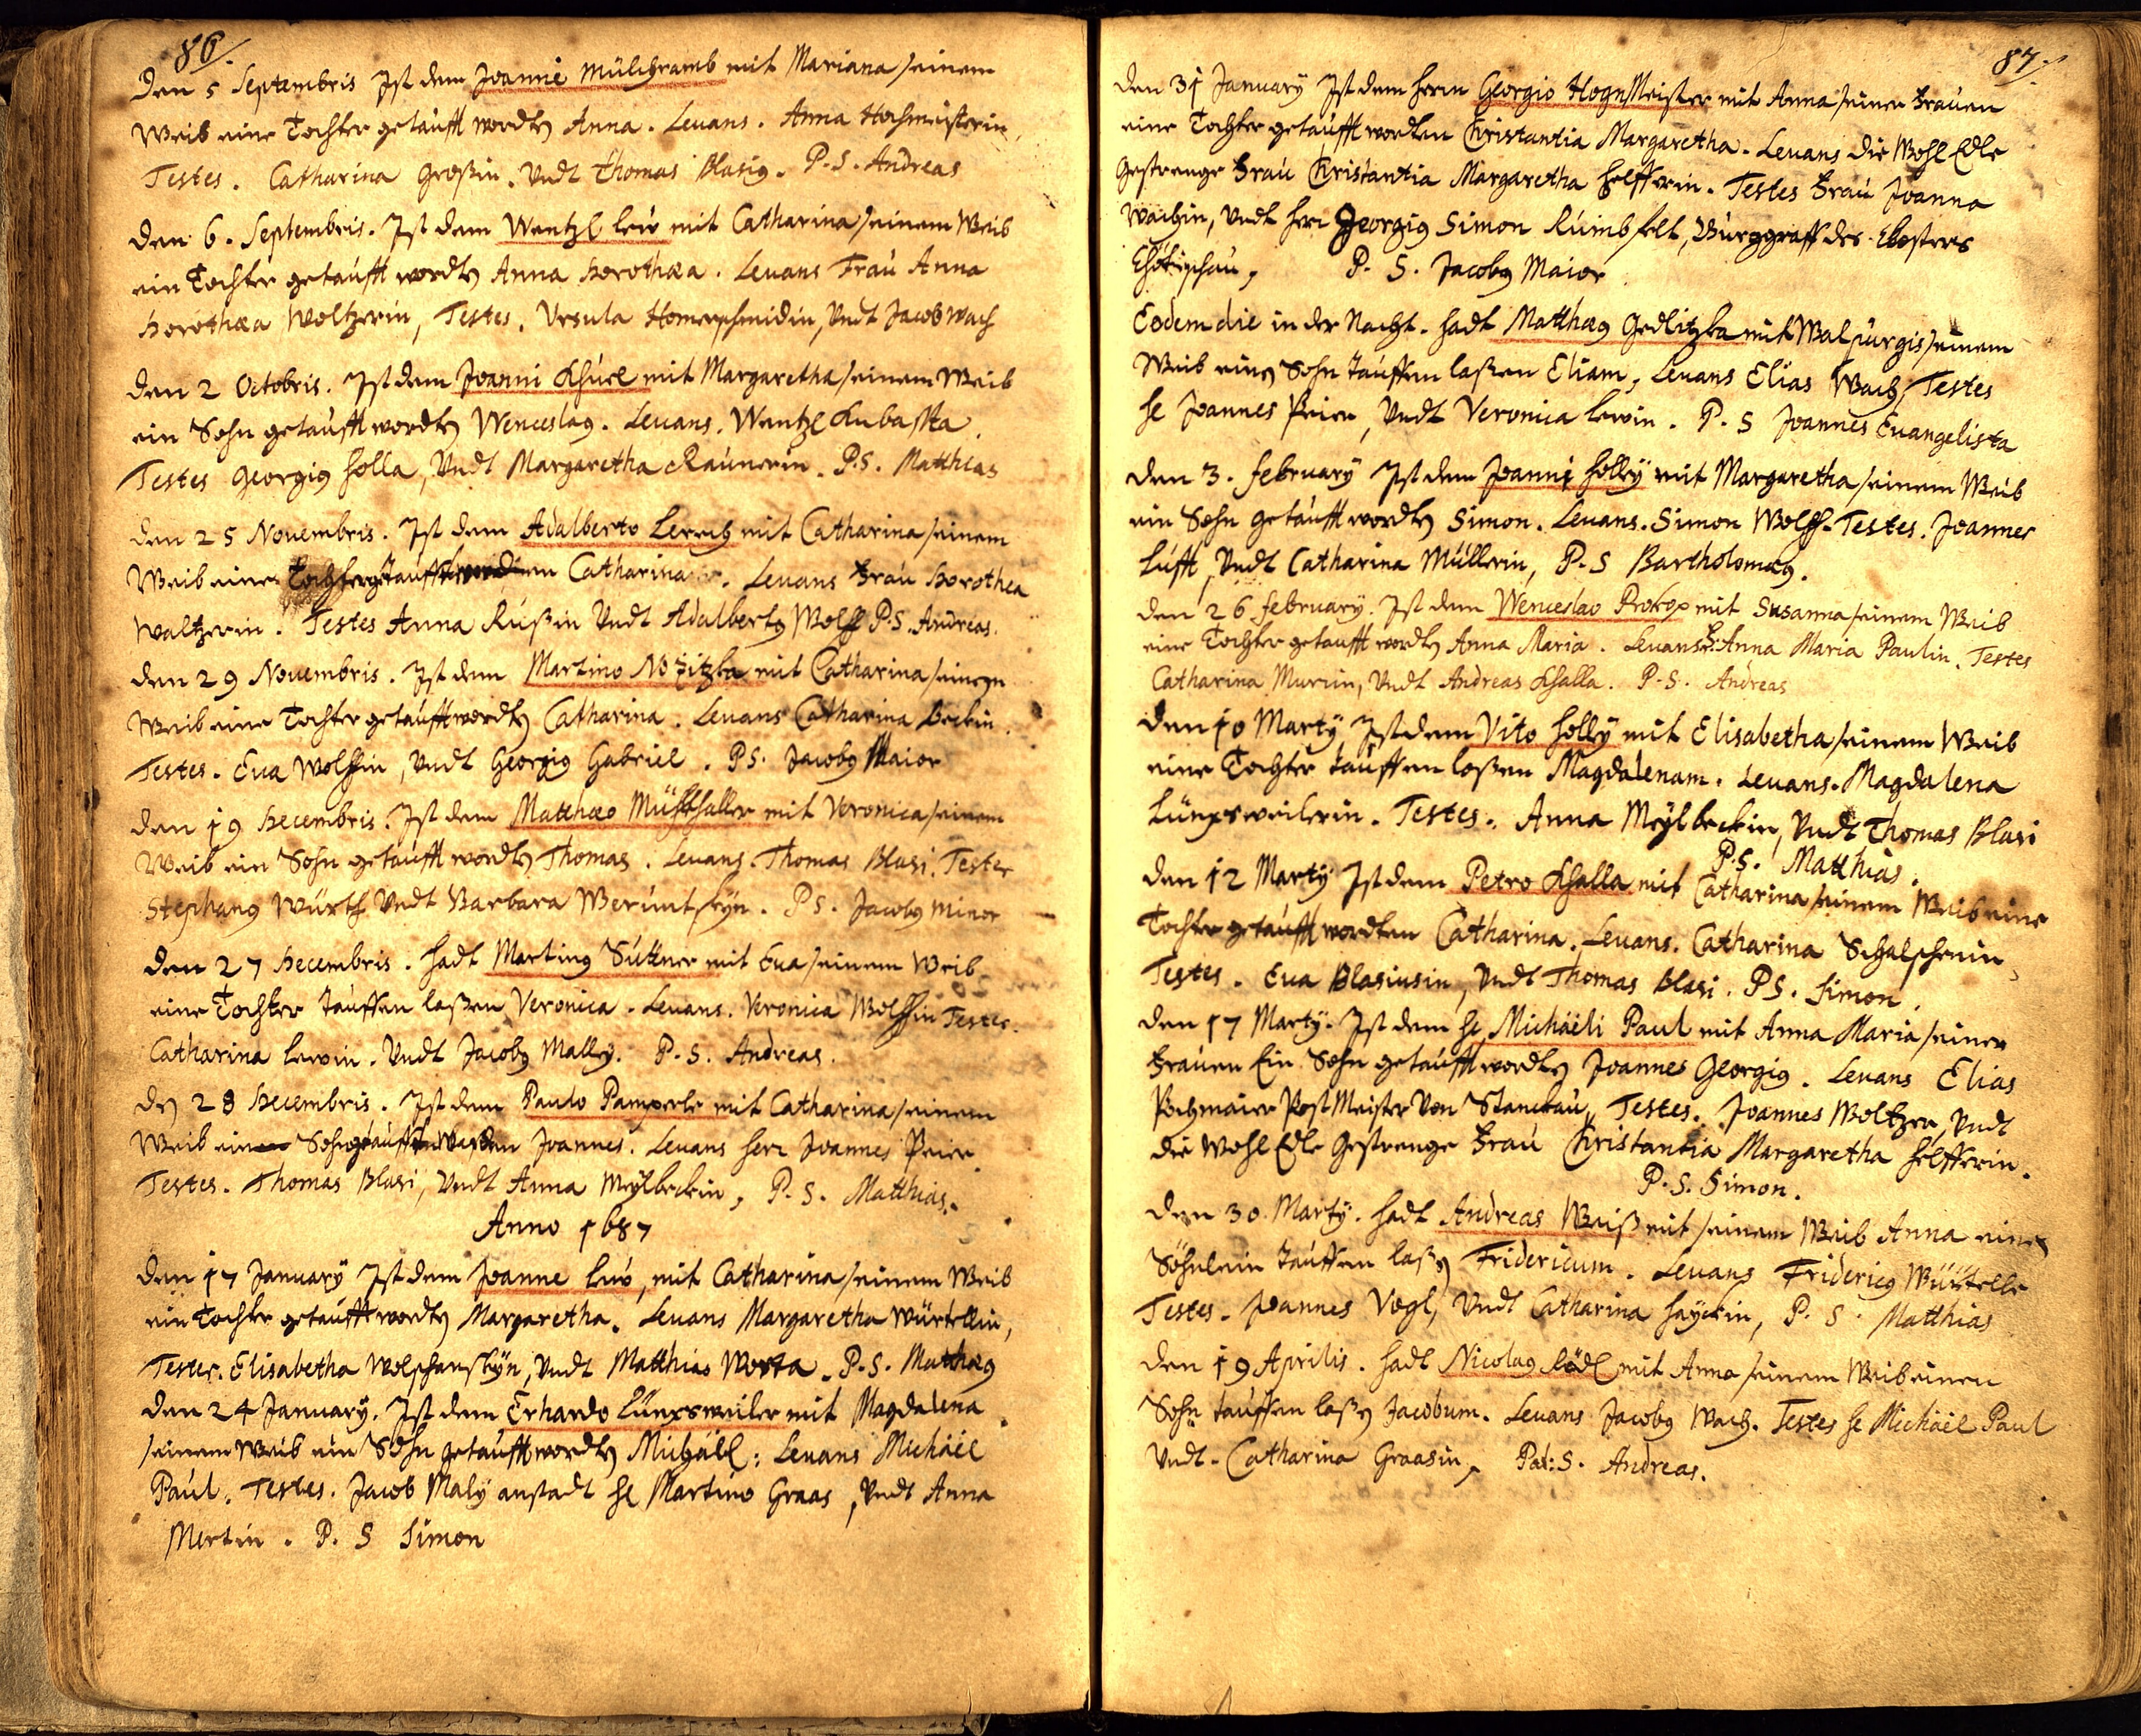 86/.
Den 5 Septembris Ist dem Joanne Mülchramb mit Mariana seinem
Weib eine Tochter getaufft wordten Anna. Leuans. Anna Hochmeisterin,
Testes. Catharina Großin. Vndt Thomas Blasius. P.S. Andreas
Den 6. Septembris. Ist dem Wentzl Lew mit Catharina seinem Weib
ein Tochter getaufft wordten Anna Dorothæa. Leuans Frau Anna
Dorothæa Woltzerin, Testes. Vrsula Hamerschmidin, Vndt Jacob Wach
Den 2 Octobris. Ist dem Joanni Khürl mit Margaretha seinem Weib
ein Sohn getaufft wordten Wenceslaus. Leuans. Wentzl Kubastka.
Testes Georgius Holla, Vndt Margaretha Raunerin. P.S. Matthias
Den 25 Nouembris. Ist dem Adalberto Lerch mit Catharina seinem
Weib eine Tochter getaufft wordten Catharina. Leuans Frau Dorothea
Waltzerin. Testes Anna Rußin Vndt Adalbertus Wolff P.S. Andreas.
Den 29 Nouembris. Ist dem Martino Nožitzka mit Catharina seinem
Weib eine Tochter getaufft wordten Catharina. Leuans Catharina Beckin.
Testes. Eua Wolffin, Vndt Georgius Gabriel. P.S. Jacobus Maior
Den 19 Decembris. Ist dem Matthæo Mühlhaller mit Veronica seinem
Weib ein Sohn getaufft wordten Thomas. Leuans. Thomas Blasi. Testes
Stephanus Würth Vndt Barbara Beruntskyn. P.S. Jacobus Minor
Den 27 Decembris. Hadt Martinus Suttner mit Eua seinem Weib
eine Tochter tauffen laßen Veronica. Leuans. Veronica Wolffin Testes.
Catharina Lewin. Vndt Jacobus Malley. P.S. Andreas.
Den 28 Decembris. Ist dem Paulo Pamperle mit Catharina seinem
Weib ein Sohn getaufft worden Joannes. Leuans Herr Joannes Peier.
Testes. Thomas Blasi, Vndt Anna Meylbeckin, P.S. Matthias.
Anno 1687
Den 17 January Ist dem Joanne Lew, mit Catharina seinem Weib
ein Tochter getaufft wordten Margaretha. Leuans Margaretha Würtellin,
Testes. Elisabetha Wolschanskyn, Vndt Matthias Worta. P.S. Matthæus
Den 24 January. Ist dem Erhardo Lünxsweiler mit Magdalena
seinem Weib ein Sohn getaufft wordten Michäel: Leuans Michäel
Paul. Testes. Jacob Maly anstadt H. Martino Graas, Vndt Anna
Mertin. P. S Simon
87/.
Den 31 January Ist dem Herrn Georgio HognMeister mit Anna seiner Frauen
eine Tochter getaufft wordten Christantia Margaretha. Leuans die Wohl Edle
Gestrenge Frau Christantia Margaretha Helfferin. Testes Frau Joanna
Wachin, Vndt Herr Georgius Simon Rumbfelt, Burggraff des Closters
Chotieschau, P. S. Jacobus Maior
Eodem die in der Nacht. Hadt Matthæus Gedlitzka mit Walpurgis seinem
Weib einen Sohn tauffen laßen Eliam, Leuans Elias Wach, Testes
H. Joannes Peier, Vndt Veronica Lewin. P. S Joannes Euangelista
Den 3. February Ist dem Joanni Holley mit Margaretha seinem Weib
ein Sohn getaufft wordten Simon. Leuans. Simon Wolff. Testes. Joannes
Lufft, Vndt Catharina Müllerin, P.S Bartholomæus.
Den 26 February. Ist dem Wenceslao Prokop mit Susanna seinem Weib
eine Tochter getaufft wordten Anna Maria. Leuans F. Anna Maria Paulin. Testes
Catharina Murrin, Vndt Andreas Khalla. P.S. Andreas
Den 10 Marty Ist dem Vito Holly mit Elisabetha seinem Weib
eine Tochter tauffen laßen Magdalenam. Leuans. Magdalena
Lünxsweilerin. Testes. Anna Meylbeckin, Vndt Thomas Blasi
P.S. Matthias.
Den 12 Marty Ist dem Petro Khalla mit Catharina seinem Weib eine
Tochter getaufft wordten Catharina. Leuans. Catharina Schalscherin,
Testes. Eua Blasiusin, Vndt Thomas Blasi. P.S. Simon.
Den 17 Marty. Ist dem H. Michäeli Paul mit Anna Maria seiner
Frauen Ein Sohn getaufft wordten Joannes Georgius. Leuans Elias
Pochmaier PostMeister Von Stanckau, Testes. Joannes Woltzer, Vndt
die Wohl Edle Gestrenge Frau Christantia Margaretha Helfferin.
P.S. Simon.
Den 30. Marty. Hadt Andreas Weiß mit seinem Weib Anna einen
Söhnlein tauffen laßen Fridericum. Leuans Fridericus Würtelle
Testes. Joannes Vogl, Vndt Catharina Hayckin, P. S. Matthias
Den 19 Aprilis. Hadt Nicolaus Rödl mit Anna seinem Weib einen
Sohn tauffen laßen Jacobum. Leuans Jacobus Wach. Testes H. Michäel Paul
Vndt Catharina Graasin, Pat: S. Andreas.